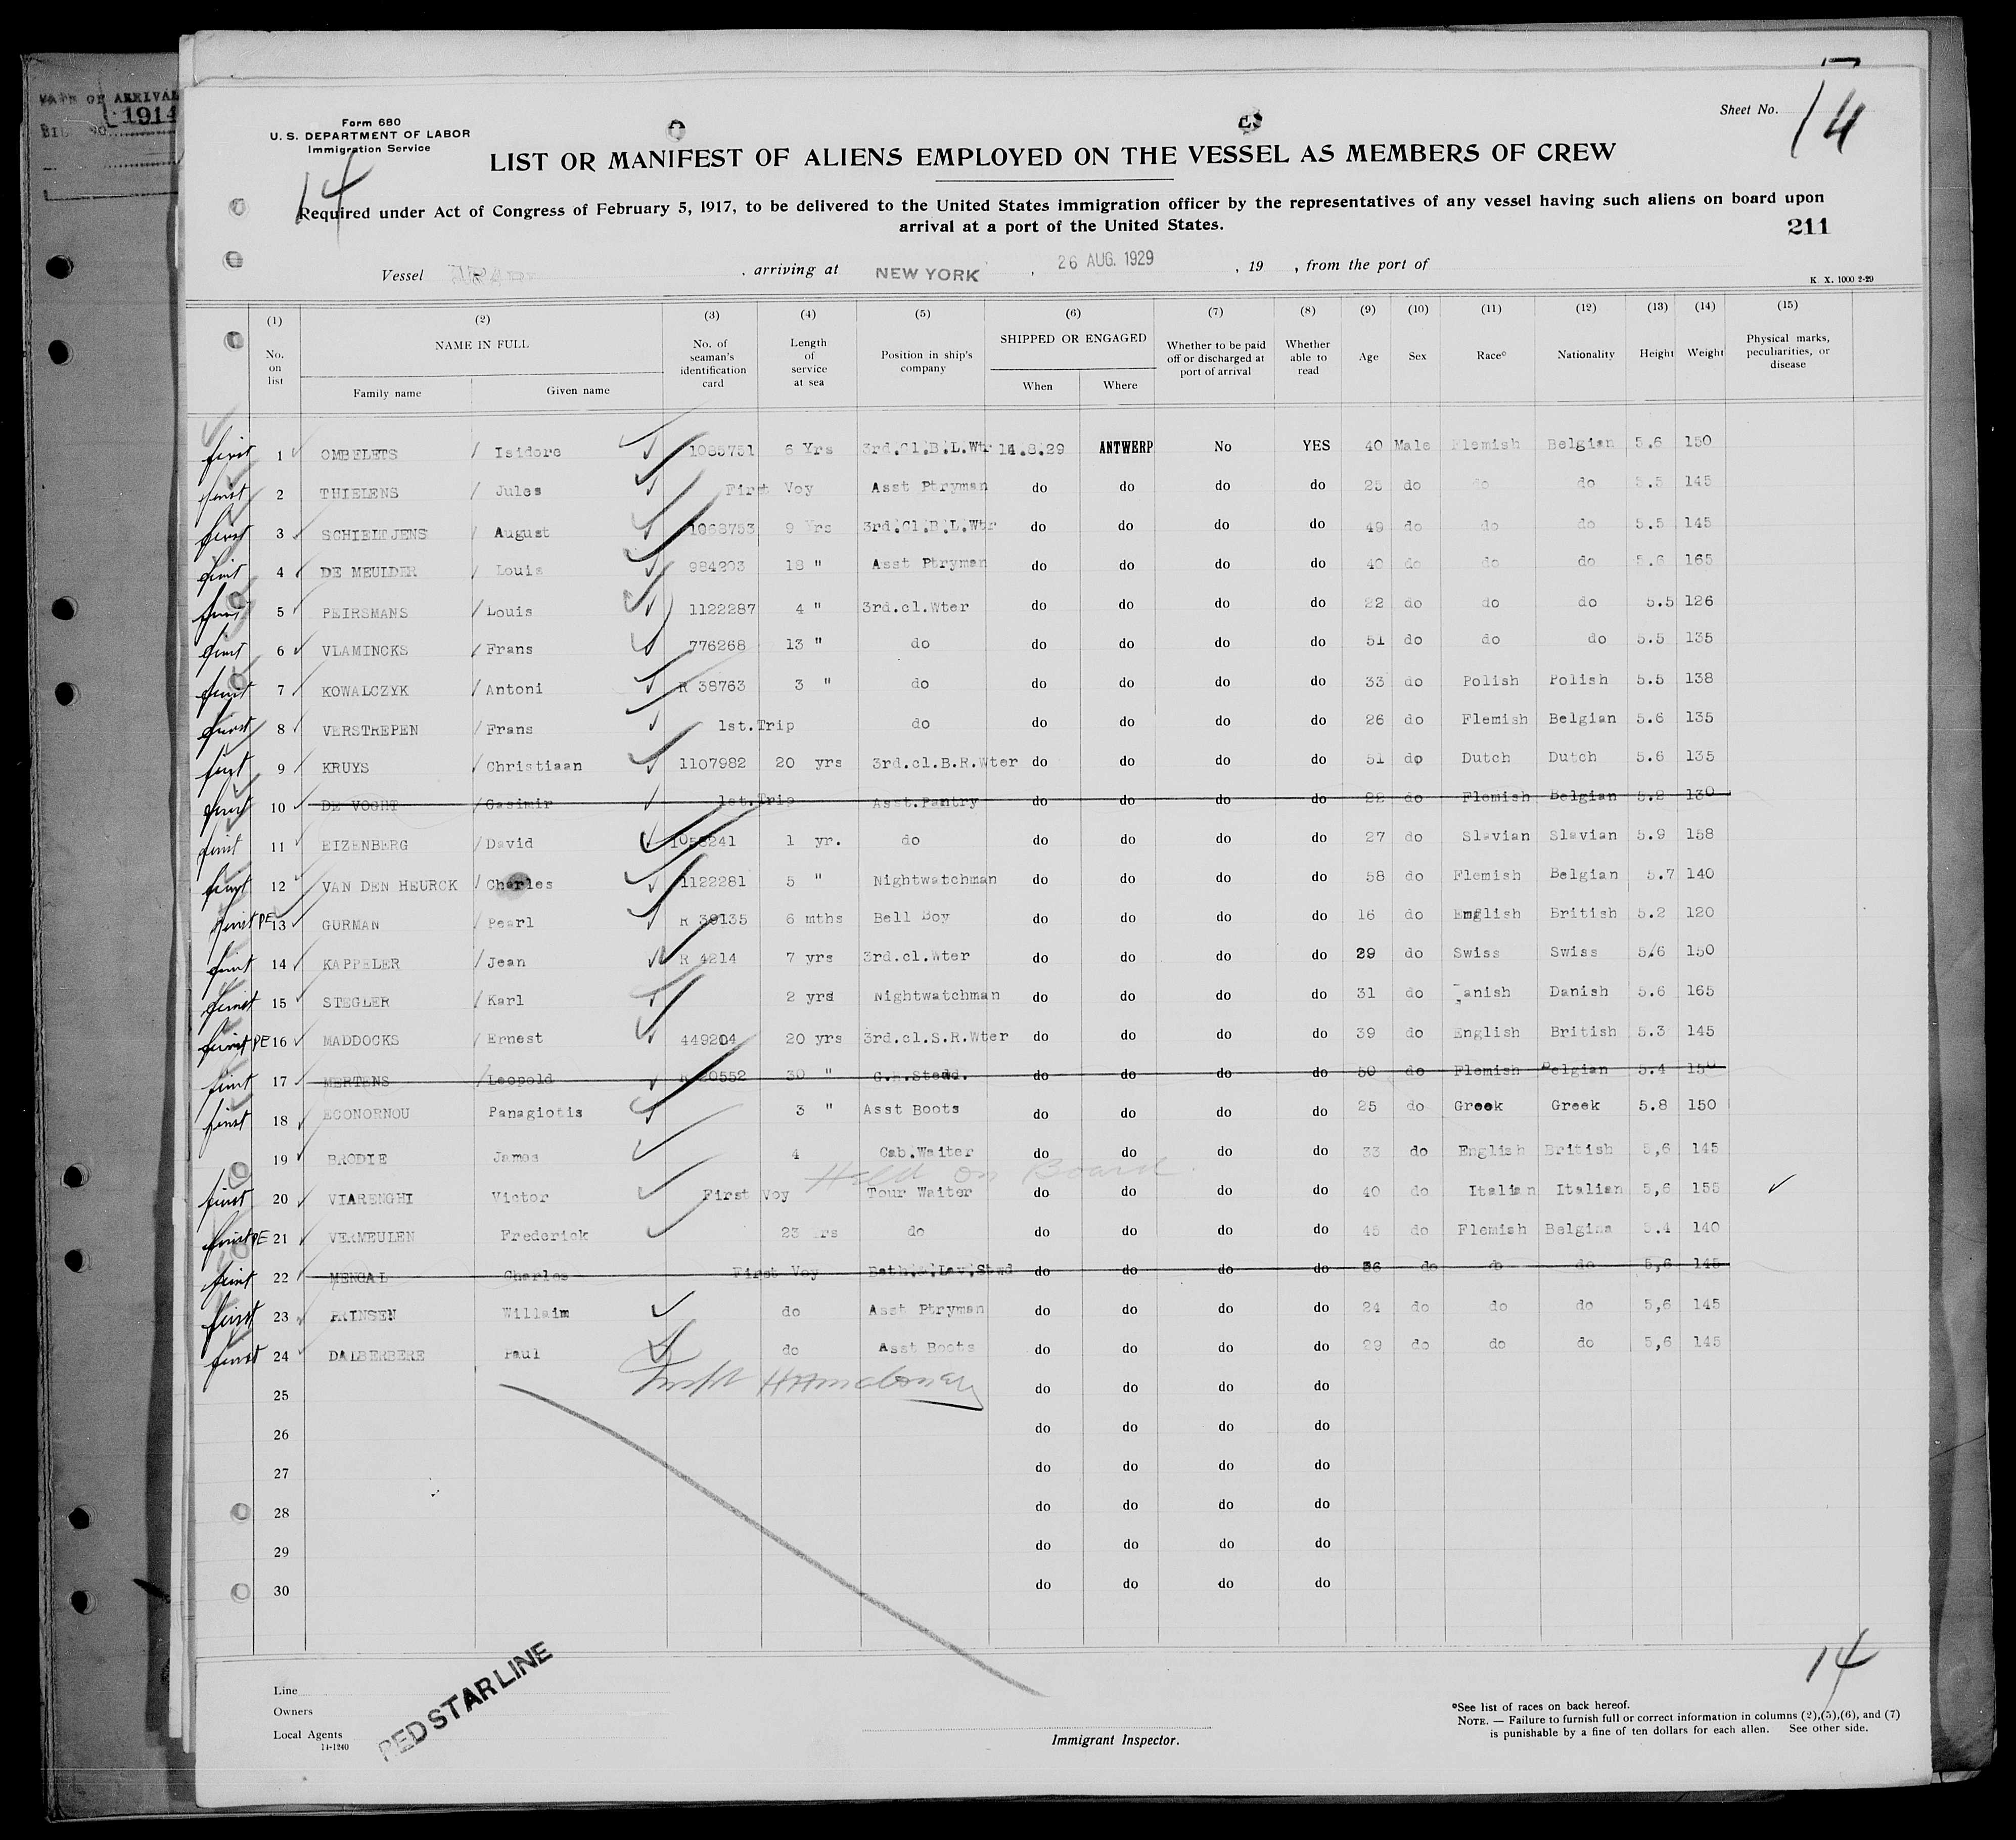 DATE OF ARRIVAL
1914
Form 680
U. S. DEPARTMENT OF LABOR
Immigration Service
Sheet No. 14
14
LIST OR MANIFEST OF ALIENS EMPLOYED ON THE VESSEL AS MEMBERS OF CREW
Required under Act of Congress of February 5, 1917, to be delivered to the United States immigration officer by the representatives of any vessel having such aliens on board upon
arrival at a port of the United States.
211
Vessel , arriving at NEW YORK , 26 AUG. 1929 , 19 , from the port of
K X. 1000 2-29
(1) (2) (3) (4) (5) (6) (7) (8) (9) (10) (11) (12) (13) (14) (15)
No. on list NAME IN FULL Family name Given name No. of seaman's identification card Length of service at sea Position in ship's company SHIPPED OR ENGAGED When Where Whether to be paid off or discharged at port of arrival Whether able to read Age Sex Race° Nationality Height Weight Physical marks, peculiarities, or disease
first 1 OMBELETS Isidore 1085751 6 Yrs 3rd.Cl.B.L.Wtr 14.8.29 ANTWERP No YES 40 Male Flemish Belgian 5.6 150
first 2 THIELENS Jules First Voy Asst Ptryman do do do do 25 do do do 5.5 145
first 3 SCHIELTJENS August 1068753 9 Yrs 3rd.Cl.B.L.Wtr do do do do 49 do do do 5.5 145
first 4 DE MEULDER Louis 984203 18 " Asst Ptryman do do do do 40 do do do 5.6 165
first 5 PEIRSMANS Louis 1122287 4 " 3rd.cl.Wter do do do do 22 do do do 5.5 126
first 6 VLAMINCKS Frans 776268 13 " do do do do do 51 do do do 5.5 135
first 7 KOWALCZYK Antoni R 38763 3 " do do do do do 33 do Polish Polish 5.5 138
first 8 VERSTREPEN Frans 1st.Trip do do do do do 26 do Flemish Belgian 5.6 135
first 9 KRUYS Christiaan 1107982 20 yrs 3rd.cl.B.R.Wter do do do do 51 do Dutch Dutch 5.6 135
first 10 DE VOGHT Casimir 1st.Trip Asst.Pantry do do do do 22 do Flemish Belgian 5.2 130
first 11 EIZENBERG David 1058241 1 yr. do do do do do 27 do Slavian Slavian 5.9 158
first 12 VAN DEN HEURCK Charles 1122281 5 " Nightwatchman do do do do 58 do Flemish Belgian 5.7 140
first PE 13 GURMAN Pearl R 39135 6 mths Bell Boy do do do do 16 do English British 5.2 120
first 14 KAPPELER Jean R 4214 7 yrs 3rd.cl.Wter do do do do 29 do Swiss Swiss 5/6 150
first 15 STEGLER Karl 2 yrs Nightwatchman do do do do 31 do Danish Danish 5.6 165
first PE 16 MADDOCKS Ernest 449204 20 yrs 3rd.cl.S.R.Wter do do do do 39 do English British 5.3 145
first 17 MERTENS Leopold R 20552 30 " do do do do 50 do Flemish Belgian 5.4 150
first 18 ECONORNOU Panagiotis 3 " Asst Boots do do do do 25 do Greek Greek 5.8 150
19 BRODIE James 4 Cab.Waiter do do do do 33 do English British 5,6 145
Held on Board.
first 20 VIARENGHI Victor First Voy Tour Waiter do do do do 40 do Italian Italian 5,6 155
first PE 21 VERMEULEN Frederick 23 rs do do do do do 45 do Flemish Belgina 5.4 140
first 22 MENGAL Charles First Voy Bath.&.Lav.Stwd do do do do 36 do do do 5,6 145
first 23 PRINSEN Willaim do Asst Ptryman do do do do 24 do do do 5,6 145
first 24 DALBERBERE Paul do Asst Boots do do do do 29 do do do 5,6 145
25 do do do do
26 do do do do
27 do do do do
28 do do do do
29 do do do do
30 do do do do
14
Line
Owners
Local Agents
14-1240
RED STAR LINE
Immigrant Inspector.
°See list of races on back hereof.
NOTE. — Failure to furnish full or correct information in columns (2),(5),(6), and (7)
is punishable by a fine of ten dollars for each allen. See other side.